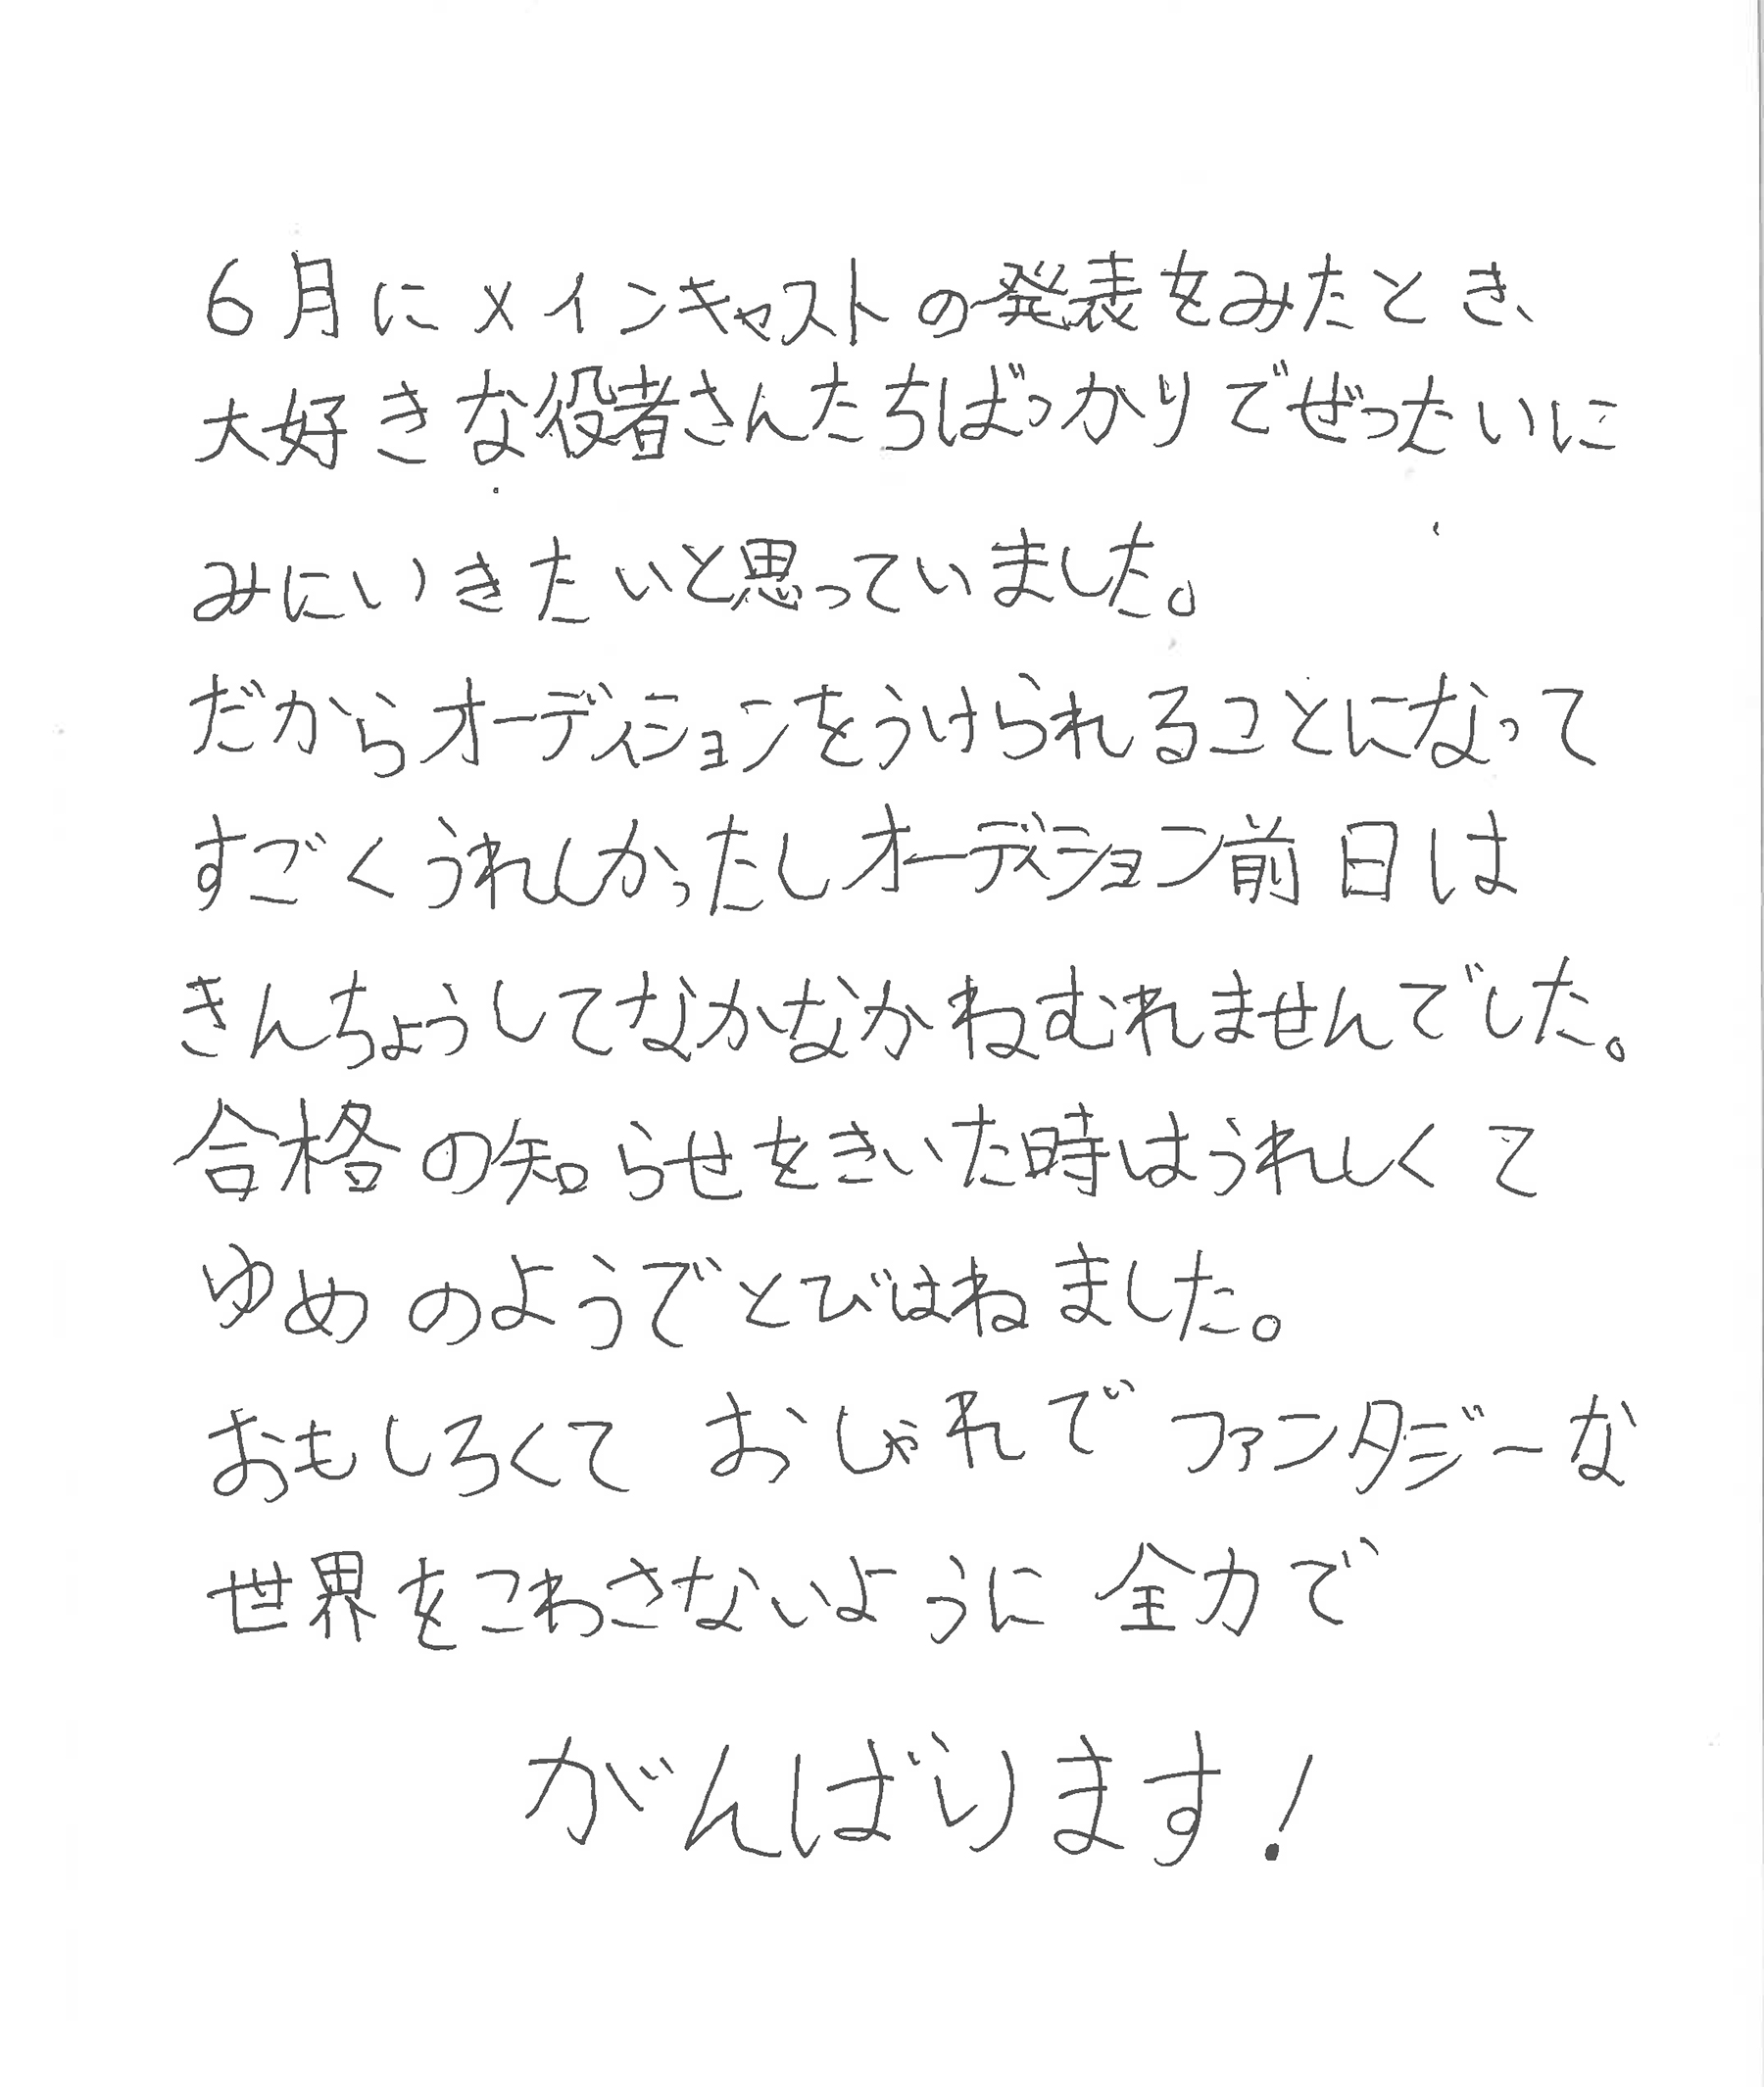 6月にメインキャストの発表をみたとき、
大好きな役者さんたちばっかりでぜったいに
みにいきたいと思っていました。
だからオーディションをうけられることになって
すごくうれしかったしオーディション前日は
きんちょうしてなかなかねむれませんでした。
合格の知らせをきいた時はうれしくて
ゆめのようでとびはねました。
おもしろくて おしゃれで ファンタジーな
世界をこわさないように 全力で
がんばります!